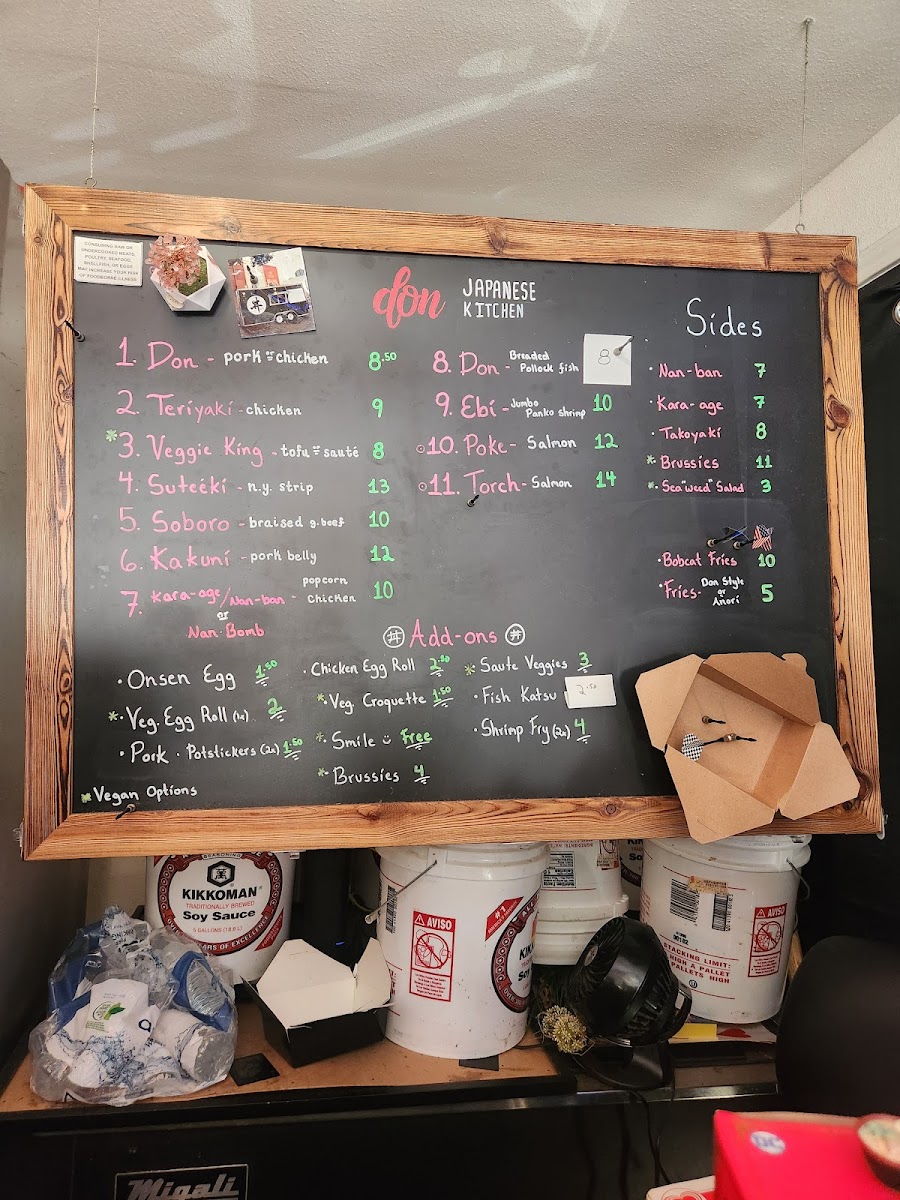 CONSUMING RAW OR
UNDERCOOKED MEATS,
POULTRY, SEAFOOD,
SHELLFISH, OR EGGS
MAY INCREASE YOUR RISK
OF FOODBORNE ILLNESS
don JAPANESE
KITCHEN
1. Don - pork or chicken 8.50
2. Teriyaki - chicken 9
3. Veggie King - tofu or sauté 8
4. Sutēēki - n.y. strip 13
5. Soboro - braised g. beef 10
6. Kakuni - pork belly 12
7. Kara-age/Nan-ban - popcorn chicken 10
or
Nan-Bomb
8. Don - Breaded Pollock fish 8
9. Ebi - Jumbo Panko shrimp 10
10. Poke - Salmon 12
11. Torch - Salmon 14
Sides
Nan-ban 7
Kara-age 7
Takoyaki 8
Brussies 11
Sea"weed" Salad 3
Bobcat Fries 10
Fries - Don Style or Anori 5
# Add-ons #
Onsen Egg 1.50
Veg. Egg Roll 2
Pork Potstickers (2x) 1.50
Chicken Egg Roll 2.50
Veg Croquette 1.50
Smile Free
Brussies 4
Saute Veggies 3
Fish Katsu 2.50
Shrimp Fry (2x) 4
Vegan Options
SEASONING
KIKKOMAN
TRADITIONALLY BREWED
Soy Sauce
5 GALLONS (18.9 L)
YEARS OF EXCELLENCE
AVISO
#1
STACKING LIMIT:
HIGH 1 PALLET
PALLETS HIGH
AVISO
DC
Migali